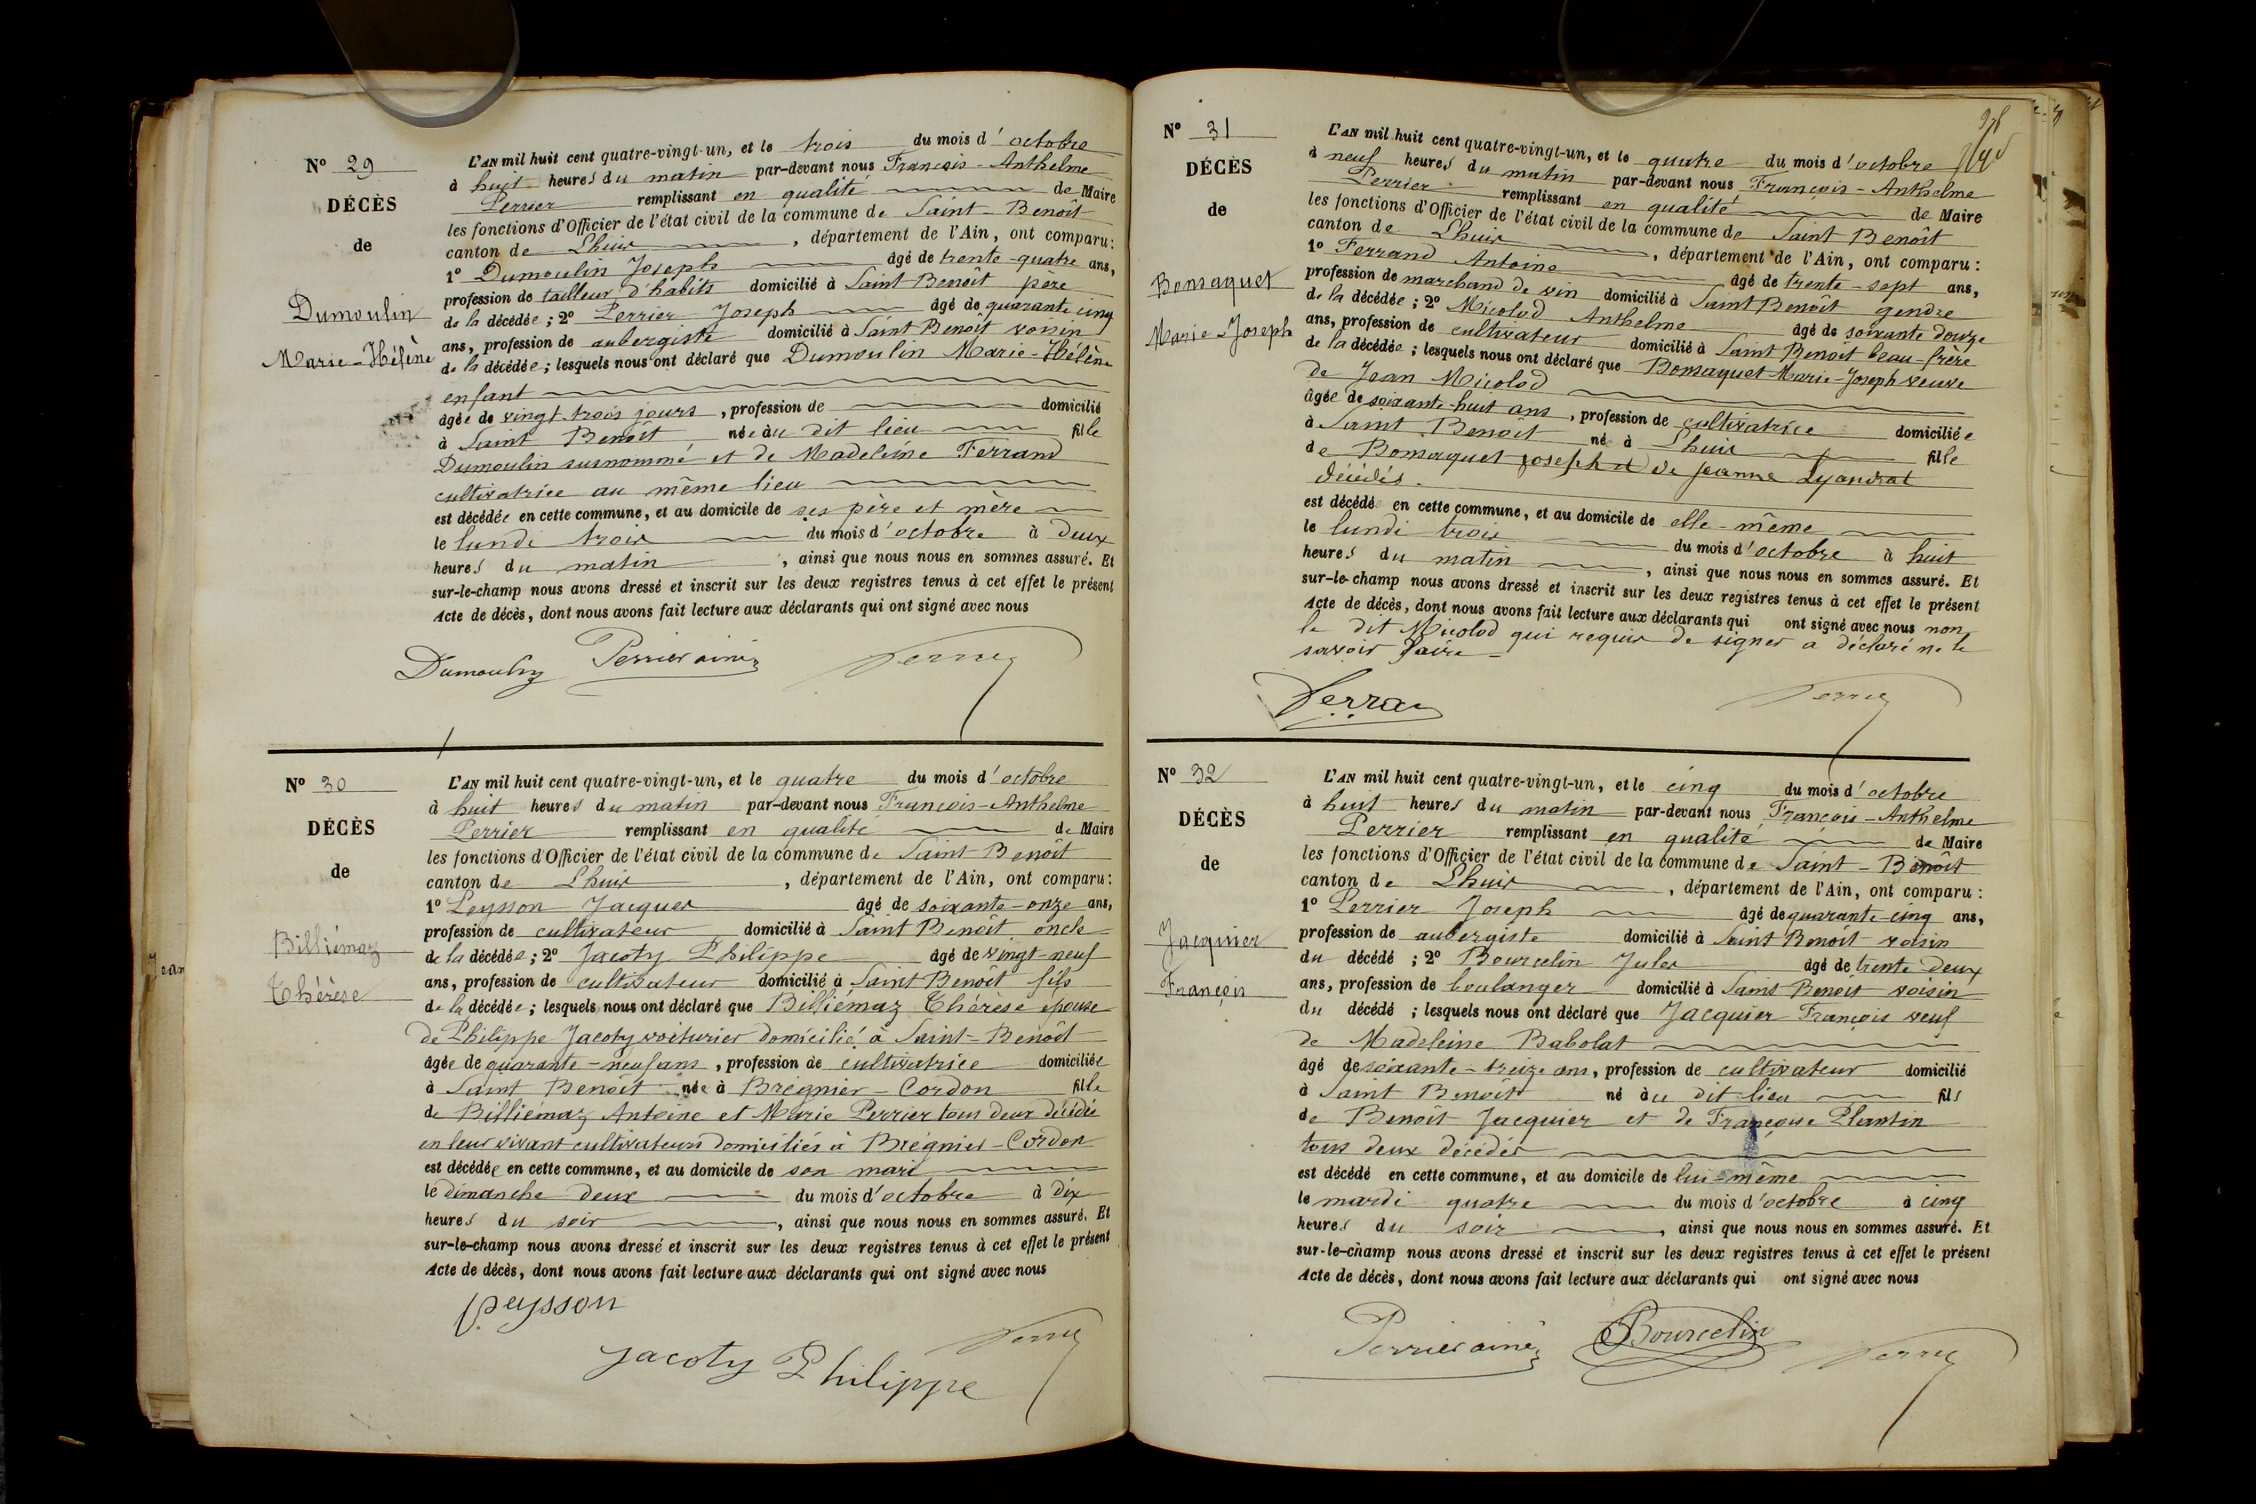 N° 29
DÉCÈS
de
Dumoulin
Marie-Hélène
L'AN mil huit cent quatre-vingt-un, et le trois du mois d'octobre
à huit heures du matin par-devant nous François-Anthelme
Perrier remplissant en qualité de Maire
les fonctions d'Officier de l'état civil de la commune de Saint-Benoît
canton de Lhuis, département de l'Ain, ont comparu:
1° Dumoulin Joseph âgé de trente-quatre ans,
profession de tailleur d'habits domicilié à Saint Benoît père
de la décédée; 2° Perrier Joseph âgé de quarante cinq
ans, profession de aubergiste domicilié à Saint Benoît voisin
de la décédée; lesquels nous ont déclaré que Dumoulin Marie-Hélène
enfant
âgée de vingt trois jours, profession de domicilié
à Saint Benoît née au dit lieu fille
Dumoulin susnommé et de Madeleine Ferrand
cultivatrice au même lieu
est décédée en cette commune, et au domicile de ses père et mère
le lundi trois du mois d'octobre à deux
heures du matin, ainsi que nous nous en sommes assuré. Et
sur-le-champ nous avons dressé et inscrit sur les deux registres tenus à cet effet le présent
Acte de décès, dont nous avons fait lecture aux déclarants qui ont signé avec nous
Dumoulin Perrier ainé Perrier
N° 30
DÉCÈS
de
Billiémaz
Thérèse
L'AN mil huit cent quatre-vingt-un, et le quatre du mois d'octobre
à huit heures du matin par-devant nous François-Anthelme
Perrier remplissant en qualité de Maire
les fonctions d'Officier de l'état civil de la commune de Saint-Benoît
canton de Lhuis, département de l'Ain, ont comparu:
1° Peysson Jacques âgé de soixante-onze ans,
profession de cultivateur domicilié à Saint Benoît oncle
de la décédée; 2° Jacoty Philippe âgé de vingt-neuf
ans, profession de cultivateur domicilié à Saint Benoît fils
de la décédée; lesquels nous ont déclaré que Billiémaz Thérèse épouse
de Philippe Jacoty voiturier domicilié à Saint-Benoît
âgée de quarante-neuf ans, profession de cultivatrice domiciliée
à Saint Benoît née à Brégnier-Cordon fille
de Billiémaz Antoine et Marie Perrier tous deux décédés
en leur vivant cultivateurs domiciliés à Brégnier-Cordon
est décédée en cette commune, et au domicile de son mari
le dimanche deux du mois d'octobre à dix
heures du soir, ainsi que nous nous en sommes assuré. Et
sur-le-champ nous avons dressé et inscrit sur les deux registres tenus à cet effet le présent
Acte de décès, dont nous avons fait lecture aux déclarants qui ont signé avec nous
Peysson
Jacoty Philippe Perrier
N° 31
DÉCÈS
de
Bonsaquet
Marie-Joseph
L'AN mil huit cent quatre-vingt-un, et le quatre du mois d'octobre
à neuf heures du matin par-devant nous François-Anthelme
Perrier remplissant en qualité de Maire
les fonctions d'Officier de l'état civil de la commune de Saint Benoît
canton de Lhuis, département de l'Ain, ont comparu:
1° Ferrand Antoine âgé de trente-sept ans,
profession de marchand de vin domicilié à Saint Benoît gendre
de la décédée; 2° Micolod Anthelme âgé de soixante douze
ans, profession de cultivateur domicilié à Saint Benoît beau-frère
de la décédée; lesquels nous ont déclaré que Bonsaquet Marie-Joseph veuve
de Jean Micolod
âgée de soixante-huit ans, profession de cultivatrice domiciliée
à Saint Benoît né à Lhuis fille
de Bonsaquet Joseph et de Jeanne Lyaudrat
décédés.
est décédé en cette commune, et au domicile de elle-même
le lundi trois du mois d'octobre à huit
heures du matin, ainsi que nous nous en sommes assuré. Et
sur-le-champ nous avons dressé et inscrit sur les deux registres tenus à cet effet le présent
Acte de décès, dont nous avons fait lecture aux déclarants qui ont signé avec nous non
le dit Micolod qui requis de signer a déclaré ne le
savoir faire
Ferran Perrier
N° 32
DÉCÈS
de
Jacquier
François
L'AN mil huit cent quatre-vingt-un, et le cinq du mois d'octobre
à huit heures du matin par-devant nous François-Anthelme
Perrier remplissant en qualité de Maire
les fonctions d'Officier de l'état civil de la commune de Saint-Benoît
canton de Lhuis, département de l'Ain, ont comparu:
1° Perrier Joseph âgé de quarante-cinq ans,
profession de aubergiste domicilié à Saint Benoît voisin
du décédé; 2° Bourcelin Jules âgé de trente deux
ans, profession de boulanger domicilié à Saint Benoît voisin
du décédé; lesquels nous ont déclaré que Jacquier François veuf
de Madeleine Babolat
âgé de soixante-treize ans, profession de cultivateur domicilié
à Saint Benoît né au dit lieu fils
de Benoît Jacquier et de Françoise Plantin
tous deux décédés
est décédé en cette commune, et au domicile de lui-même
le mardi quatre du mois d'octobre à cinq
heures du soir, ainsi que nous nous en sommes assuré. Et
sur-le-champ nous avons dressé et inscrit sur les deux registres tenus à cet effet le présent
Acte de décès, dont nous avons fait lecture aux déclarants qui ont signé avec nous
Perrier ainé Bourcelin Perrier